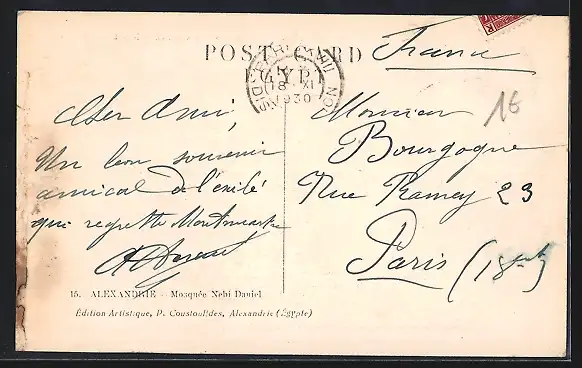 POST CARD
EGYPT
France
18 XI
1930
16
Cher Ami,
Un bon souvenir
amical de l'exilé
qui regrette Montmartre
Monsieur
Bourgogne
Rue Ramey 23
Paris (18
15. ALEXANDRIE - Mosquée Nebi Daniel
Édition Artistique, P. Coustoulides, Alexandrie (Égypte)